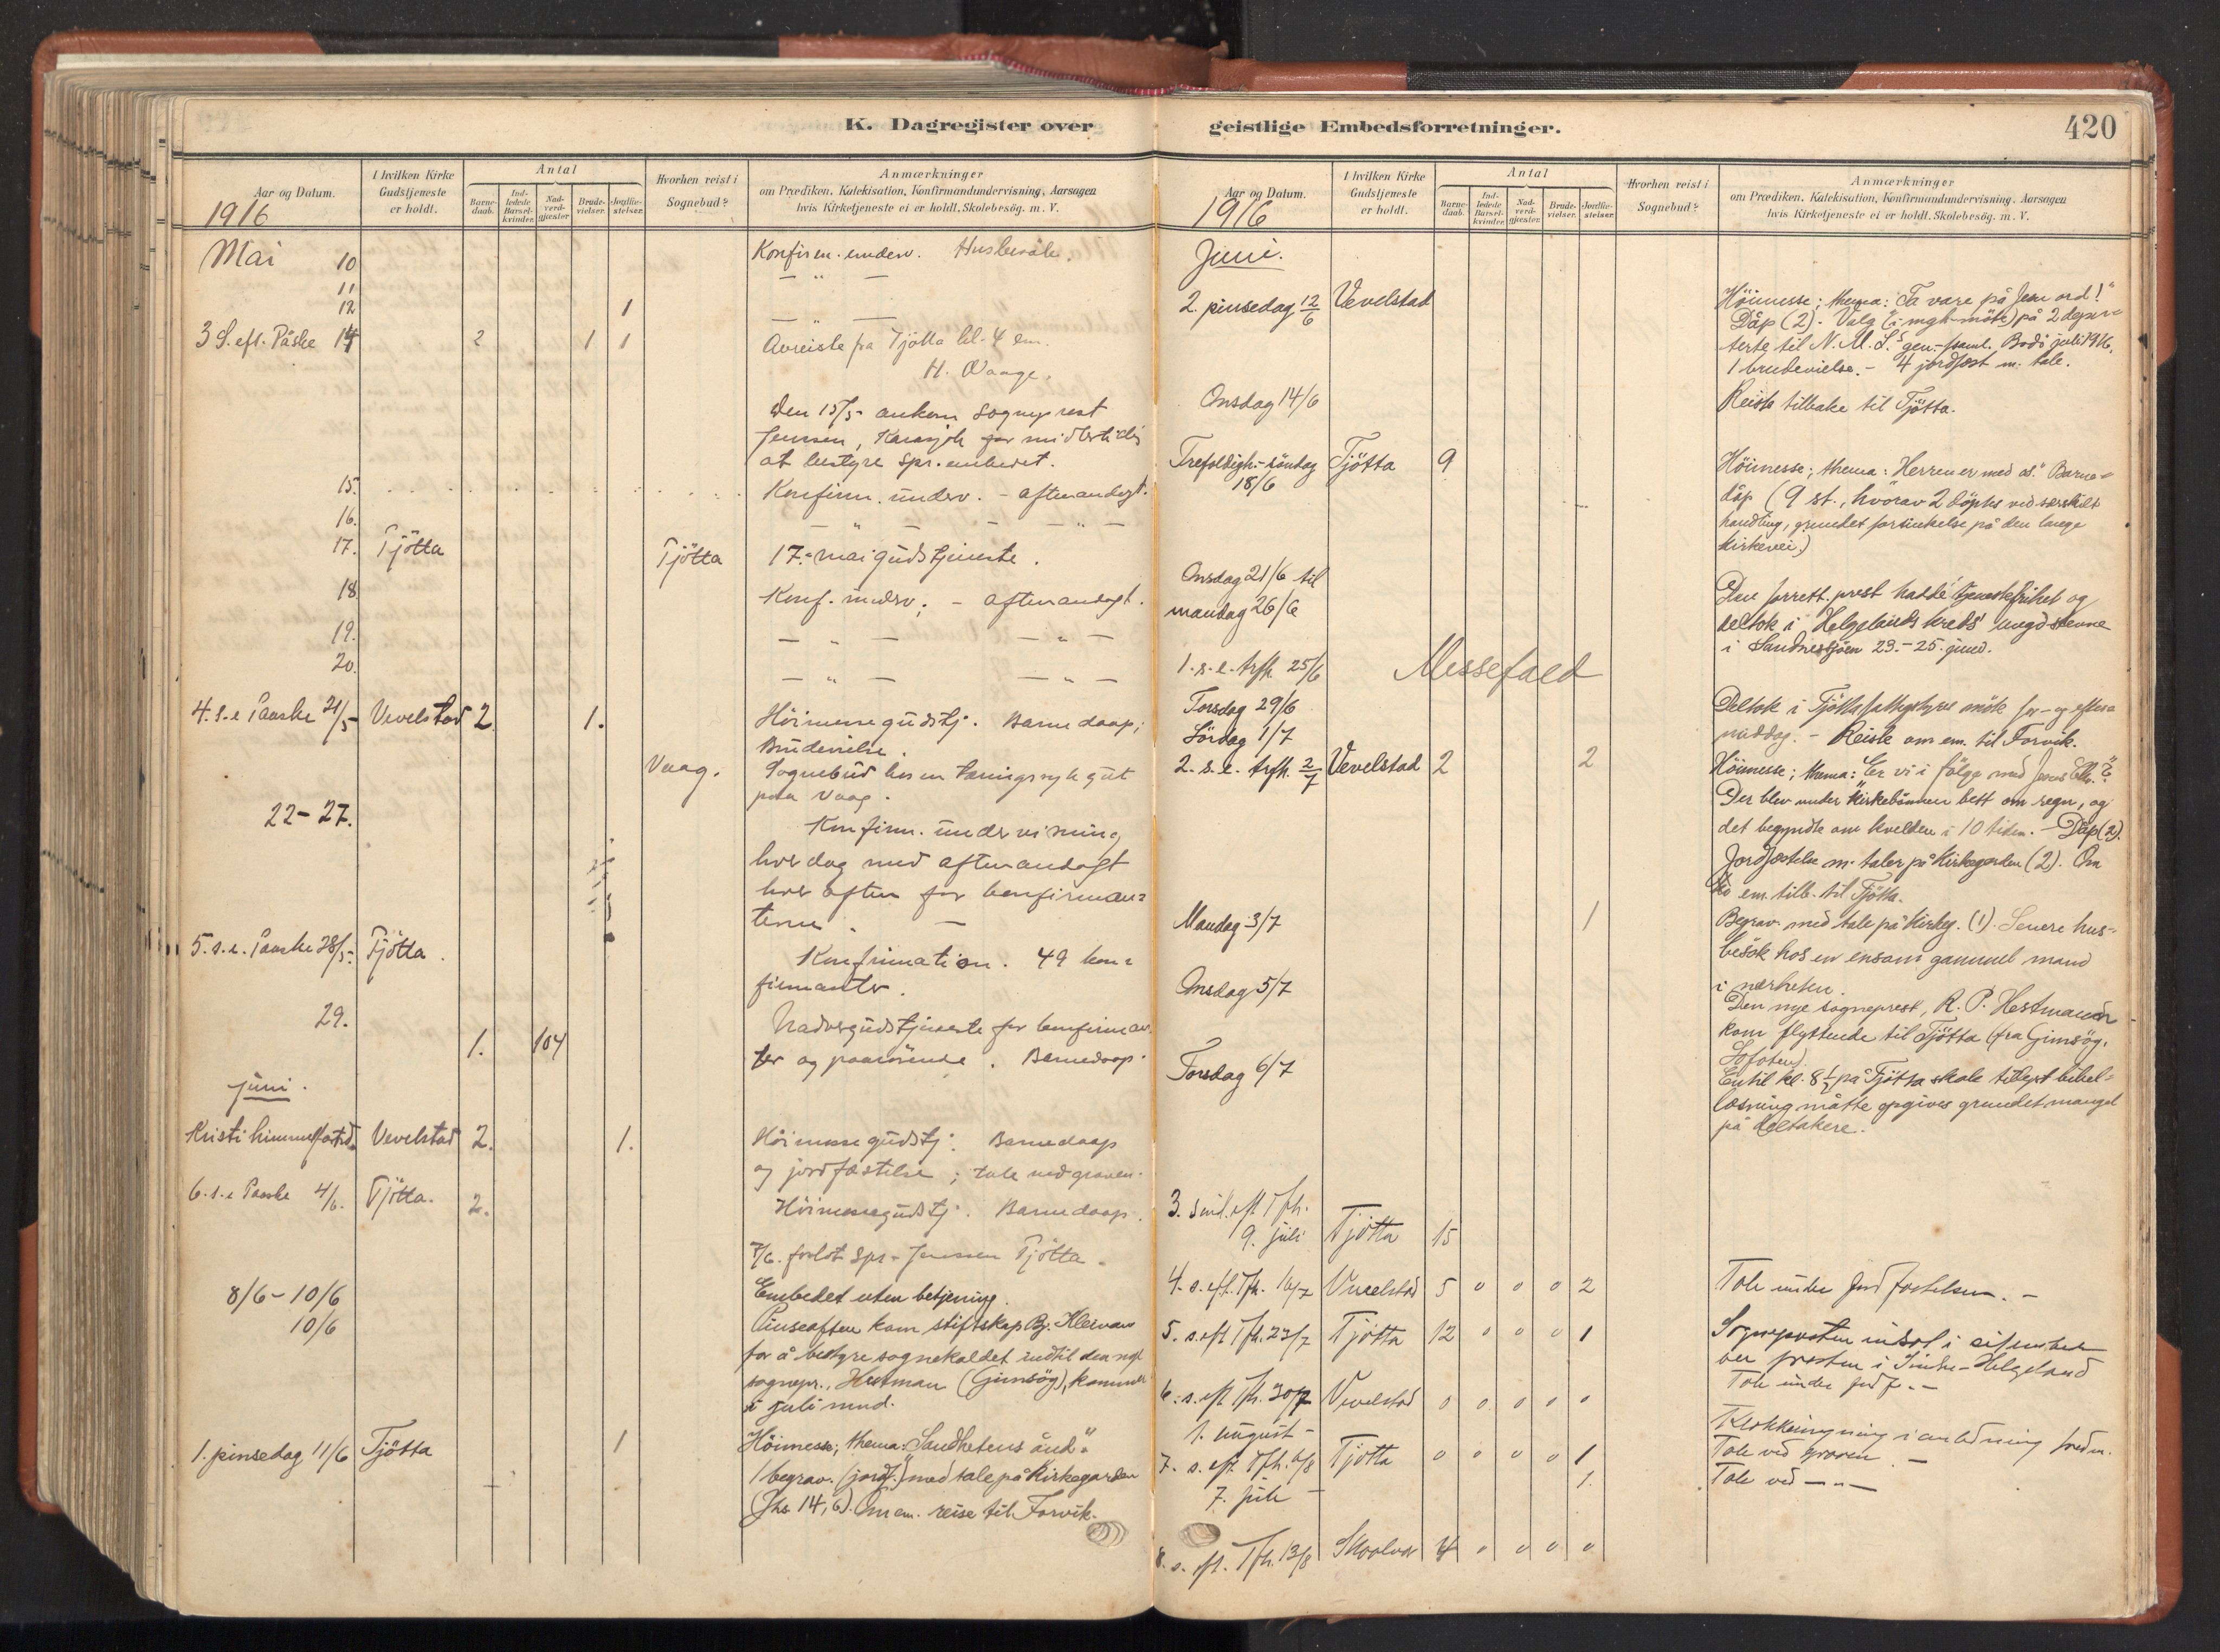 K. Dagregister over
Aar og Datum.
1916
I hvilken Kirke
Gudstjeneste
er holdt.
Antal
Barne-
daab.
Ind-
ledede
Barsel-
kvinder.
Nad-
verd-
gjæster
Brude-
vielser.
Jordfæ-
stelser.
Hvorhen reist i
Sognebud?
Anmærkninger
om Prædiken, Katekisation, Konfirmandundervisning, Aarsagen
hvis Kirketjeneste ei er holdt, Skolebesög. m. V.
Mai 10 Konfirm. underv. Husbesök.
11 — " —
12 1 —
3 S. eft. Påske 14 2 1 1 Avreiste fra Tjötta kl. 4 em.
H. Waage.
Den 15/5 ankom Sogneprest
Jenssen, Karasjok for midlertidig
at bestyre Spr. embedet.
15. Konfirm. underv. - aftenandagt.
16. — " — — " —
17. Tjötta Tjötta 17. mai gudstjeneste.
18 Konf. underv. - aftenandagt.
19. — " — — " —
20. — " — — " —
4. s. e Paaske 21/5 Vevelstad 2 1. Höimessegudstj. Barnedaap;
Brudevielse.
Vaag. Sognebud hos en tæringssyk gut
paa Vaag.
22-27. Konfirm. undervisning
hver dag med aftenandagt
hver aften for konfirman-
terne. —
5. s. e. Paaske 28/5. Tjötta. Konfirmation. 49 kon-
firmanter.
29. 1. 104 Nadvergudstjeneste for konfirman-
ter og paarörende. Barnedaap.
juni.
Kristi himmelfartsd. Vevelstad 2. 1. Höimessegudstj. Barnedaap
og jordfæstelse; tale ved graven.
6. s. e Paaske 4/6. Tjötta. 2. Höimessegudstj. Barnedaap.
7/6. forlot spr. Jenssen Tjötta.
8/6-10/6 Embedet uten betjening.
10/6 Pinseaften kom stiftskap. Bj.
for å bestyre sognekaldet indtil den nye
sognepr., Hestman (Gimsöy), kommer
i juli mnd.
1. pinsedag 11/6 Tjötta 1 Höimesse; thema: "Sandhetens ånd"
1 begrav. (jordf.) med tale på Kirkegården
(Jhs. 14, 6). Om em. reise til Forvik.
geistlige Embedsforretninger.
420
Aar og Datum.
1916
I hvilken Kirke
Gudstjeneste
er holdt.
Antal
Barne-
daab.
Ind-
ledede
Barsel-
kvinder.
Nad-
verd-
gjæster.
Brude-
vielser.
Jordfæ-
stelser.
Hvorhen reist i
Sognebud?
Anmærkninger
om Prædiken, Katekisation, Konfirmandundervisning, Aarsagen
hvis Kirketjeneste ei er holdt. Skolebesög. m. V.
Juni.
2. pinsedag 12/6 Vevelstad Höimesse; thema: "Ta vare på Jesu ord!"
Dåp (2). Valg (i mgh-möte) på 2 depu-
terte til N. M. S.' gen.-forsaml. Bodö juli 1916.
1 brudevielse. - 4 jordfæst m. tale.
Onsdag 14/6 Reiste tilbake til Tjötta.
Trefoldigh.-söndag Tjötta 9 Höimesse; thema: "Herren er med os." Barne-
18/6 dåp (9 st., hvorav 2 döptes ved særskilt
handling, grundet forsinkelse på den lange
kirkevei.)
Onsdag 21/6 til Den forrett. prest hadde tjenestefrihet og
mandag 26/6 deltok i Helgelands kreds' ungd.stevne
i Sandnessjöen 23.-25. juni.
1. s. e. trfh. 25/6 Messefald
Torsdag 29/6 Deltok i Tjötta fattigstyres möte for- og efter-
Lördag 1/7 middag. - Reiste om em. til Forvik.
2. s. e. trfh. 2/7 Vevelstad 2 2 Höimesse; thema: "Er vi i fölge med Jesus?"
Der blev under kirkebönnen bett om regn, og
det begyndte om kvelden i 10 tiden. - Dåp (2).
Jordfæstelse m. taler på Kirkegården (2). Om
em. tilb. til Tjötta.
Mandag 3/7 1 Begrav. med tale på Kirkeg. (1). Senere hus-
besök hos en ensom gammel mand
i nærheten.
Onsdag 5/7 Den nye sogneprest, R. P. Hestmann
kom flyttende til Tjötta (fra Gimsöy,
Lofoten).
Torsdag 6/7 En til kl. 8½ på Tjötta skole tillyst bibel-
læsning måtte opgives grundet mangel
på deltakere.
3. sönd. eft Tfh.
9. juli Tjötta 15
4. s. eft. Tfh. 16/7 Vevelstad 5 0 0 0 2 Tale under Jordfæstelsen. -
5. s. eft Tfh. 23/7 Tjötta 12 0 0 0 1 Sognepresten indsat i sit embede
av prosten i Söndre-Helgeland
Tale under jordf. -
6. s. eft Tfh. 30/7 Vevelstad 0 0 0 0 0
1. august - Klokkeringning i anledning
7. s. eft. Tfh. 6/8 Tjötta 0 0 0 0 1 Tale ved graven. -
7. juli - 1. Tale ved — " —
8. s. eft. Tfh. 13/8 4 0 0 0 0